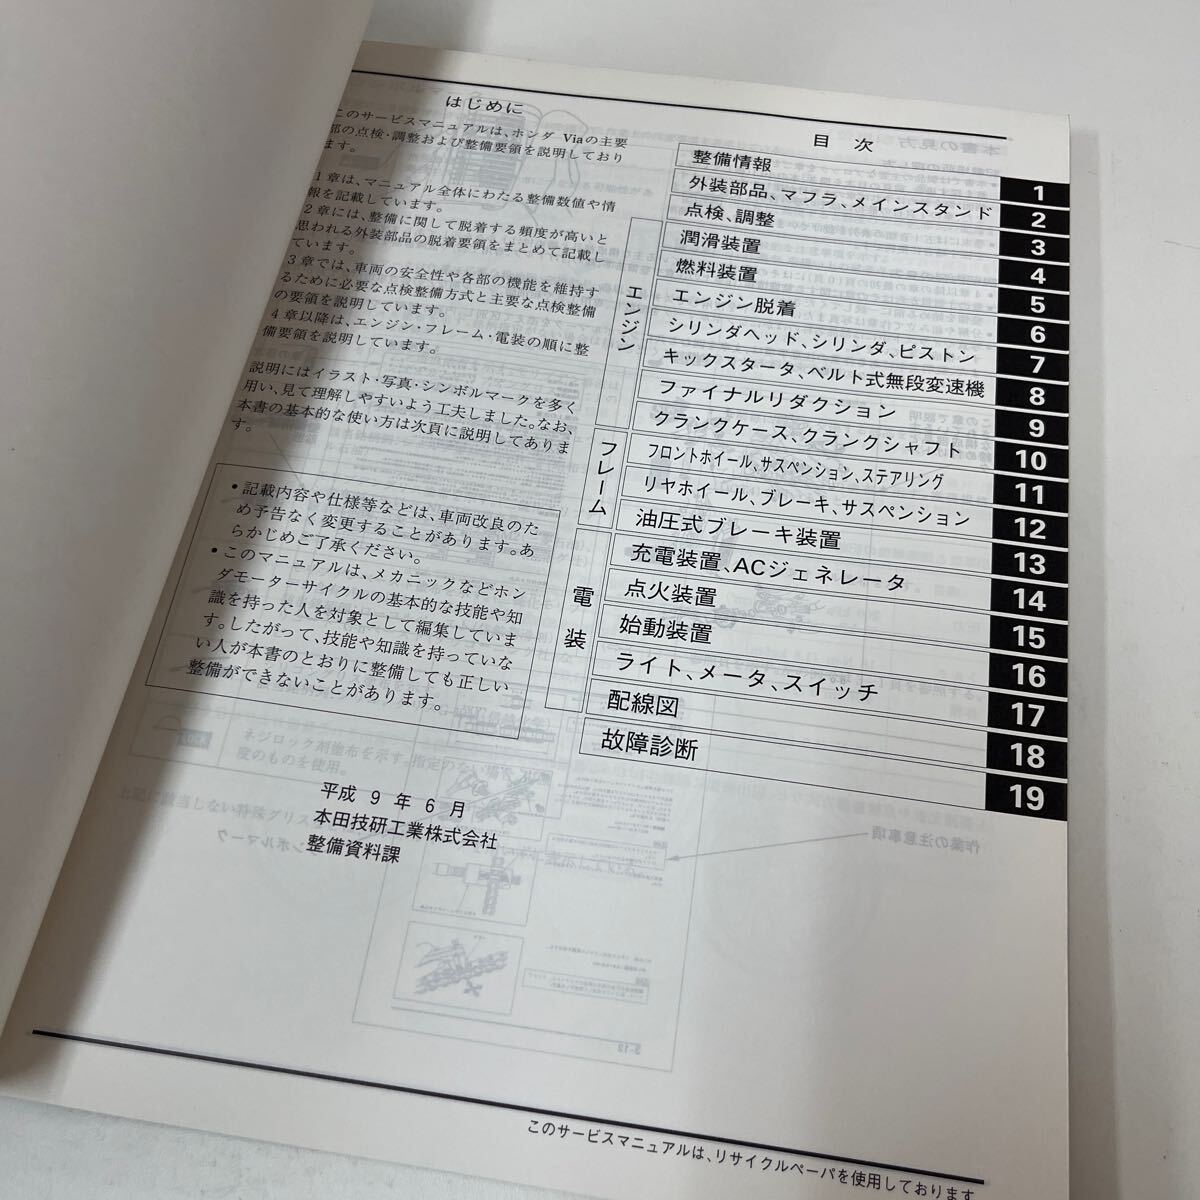 はじめに
このサービスマニュアルは、ホンダ Viaの主要
部の点検・調整および整備要領を説明しており
ます。
1章は、マニュアル全体にわたる整備数値や情
報を記載しています。
2章には、整備に関して脱着する頻度が高いと
思われる外装部品の脱着要領をまとめて記載し
ています。
3章では、車両の安全性や各部の機能を維持す
るために必要な点検整備方式と主要な点検整備
の要領を説明しています。
4章以降は、エンジン・フレーム・電装の順に整
備要領を説明しています。
説明にはイラスト・写真・シンボルマークを多く
用い、見て理解しやすいよう工夫しました。なお、
本書の基本的な使い方は次頁に説明してありま
す。
• 記載内容や仕様等などは、車両改良のた
め予告なく変更することがあります。あ
らかじめご了承ください。
• このマニュアルは、メカニックなどホン
ダモーターサイクルの基本的な技能や知
識を持った人を対象として編集していま
す。したがって、技能や知識を持っていな
い人が本書のとおりに整備しても正しい
整備ができないことがあります。
平成 9 年 6 月
本田技研工業株式会社
整備資料課
目 次
整備情報 1
外装部品、マフラ、メインスタンド 2
点検、調整 3
エンジン
潤滑装置 4
燃料装置 5
エンジン脱着 6
シリンダヘッド、シリンダ、ピストン 7
キックスタータ、ベルト式無段変速機 8
ファイナルリダクション 9
クランクケース、クランクシャフト 10
フレーム
フロントホイール、サスペンション、ステアリング 11
リヤホイール、ブレーキ、サスペンション 12
油圧式ブレーキ装置 13
電装
充電装置、ACジェネレータ 14
点火装置 15
始動装置 16
ライト、メータ、スイッチ 17
配線図 18
故障診断 19
このサービスマニュアルは、リサイクルペーパを使用しております